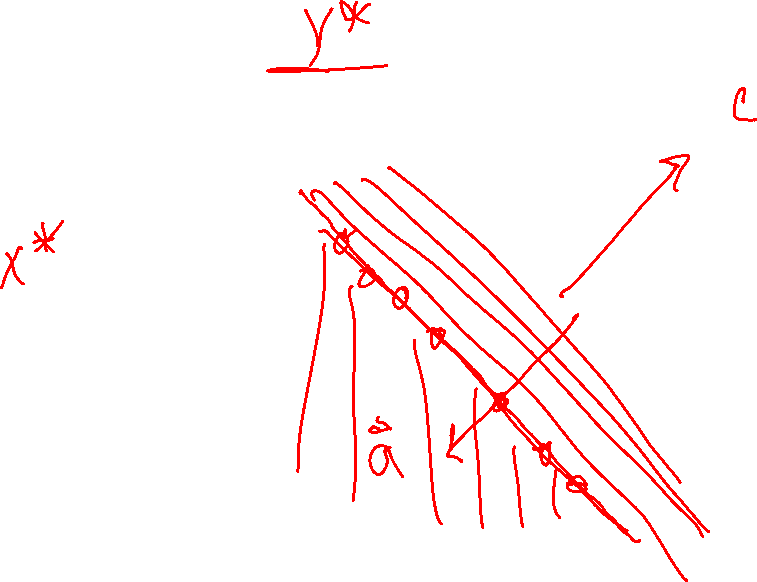 y*
c
x*
a